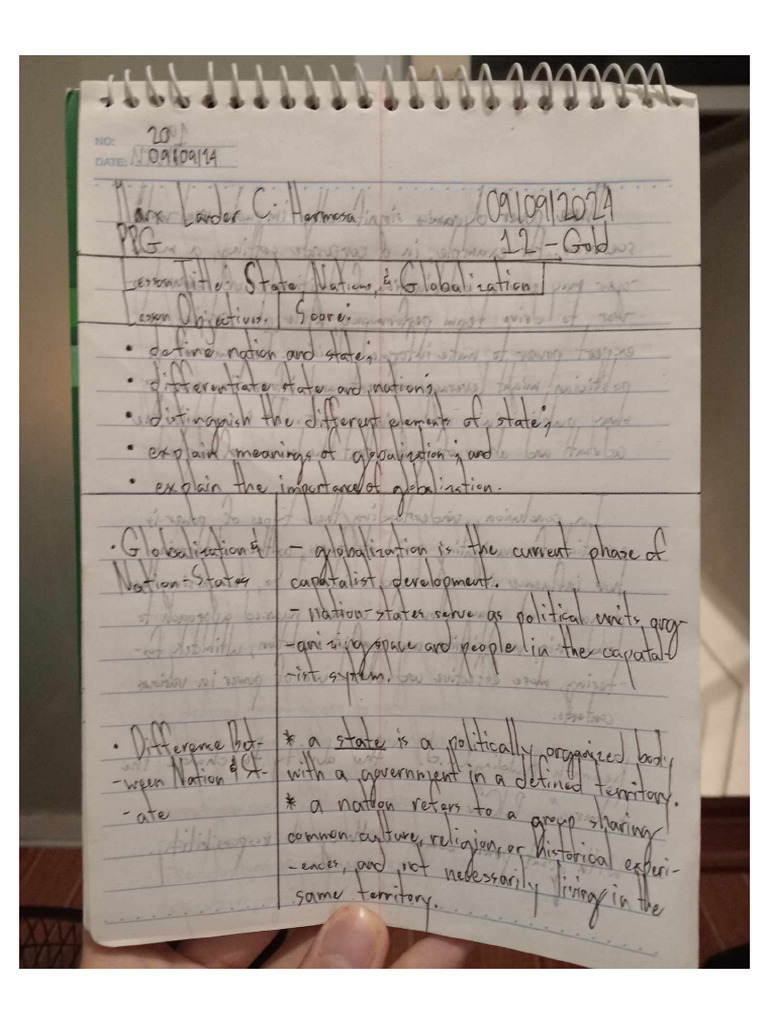 NO: 20
DATE: 09/09/24
Marx Lander C. Hermosa 09/09/2024
PPG 12-Gold
Lesson Title: State, Nations, & Globalization
Lesson Objectives: Score:
• define nation and state;
• differentiate state and nation;
• distinguish the different elements of state;
• explain meanings of globalization; and
• explain the importance of globalization.
• Globalization &
Nation-States
- globalization is the current phase of
capatalist development.
- nation-states serve as political units, org-
-anizing space and people in the capatal-
-ist system.
• Difference Bet-
-ween Nation & St-
-ate
* a state is a politically organized body
with a government in a defined territory.
* a nation refers to a group sharing
common culture, religion, or historical experi-
-ences, and not necessarily living in the
same territory.